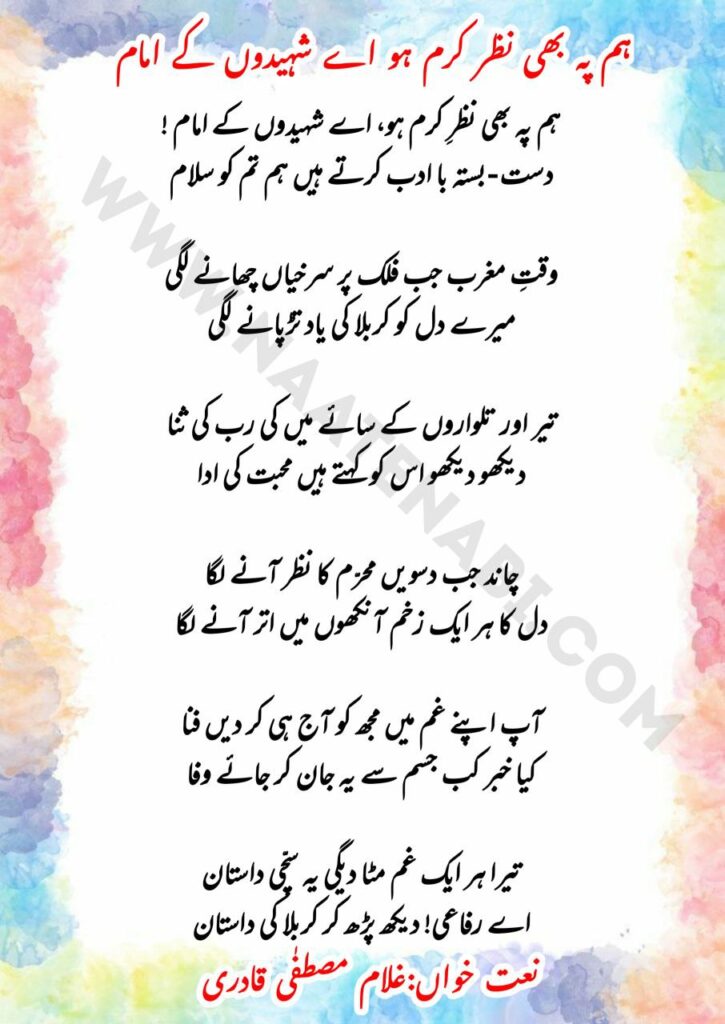 ہم پہ بھی نظر کرم ہو اے شہیدوں کے امام
ہم پہ بھی نظرِ کرم ہو، اے شہیدوں کے امام !
دست-بستہ با ادب کرتے ہیں ہم تم کو سلام
وقتِ مغرب جب فلک پر سرخیاں چھانے لگی
میرے دل کو کربلا کی یاد تڑپانے لگی
تیر اور تلواروں کے سائے میں کی رب کی ثنا
دیکھو دیکھو اس کو کہتے ہیں محبت کی ادا
چاند جب دسویں محرّم کا نظر آنے لگا
دل کا ہر ایک زخم آنکھوں میں اتر آنے لگا
آپ اپنے غم میں مجھ کو آج ہی کر دیں فنا
کیا خبر کب جسم سے یہ جان کر جائے وفا
تیرا ہر ایک غم مٹا دیگی یہ سچّی داستان
اے رفاعی! دیکھ پڑھ کر کربلا کی داستان
نعت خواں:غلام مصطفٰی قادری
WWW.NAATENABI.COM